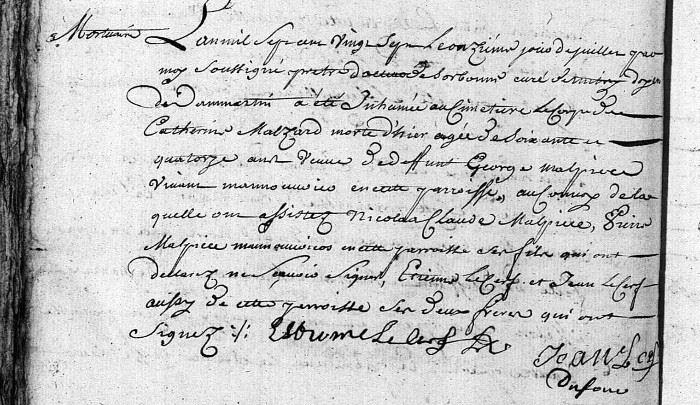 Mortuaire
Lan mil sept cent vingt sept le onzième jour de juillet par
moy soussigné pretre docteur de Sorbonne curé de doyen
de Dammartin a été Inhumée au Cimetiere le corps de
Catherine Malzard morte d'hier agée de soixante et
quatorze ans veuve de deffunt George Malpiece
vivant mannouvrier en cette parroisse, au Convoy de la
quelle ont assistez Nicolas Claude Malpiece, Pierre
Malpiece mannouvriers en cette parroisse ses fils qui ont
declarez ne sçavoir signer, Etienne Le Cerf et Jean Le Cerf
aussy de cette parroisse ses deux freres qui ont
signez :/: Estienne Le Cerf
Jean Le Cerf
Dufour